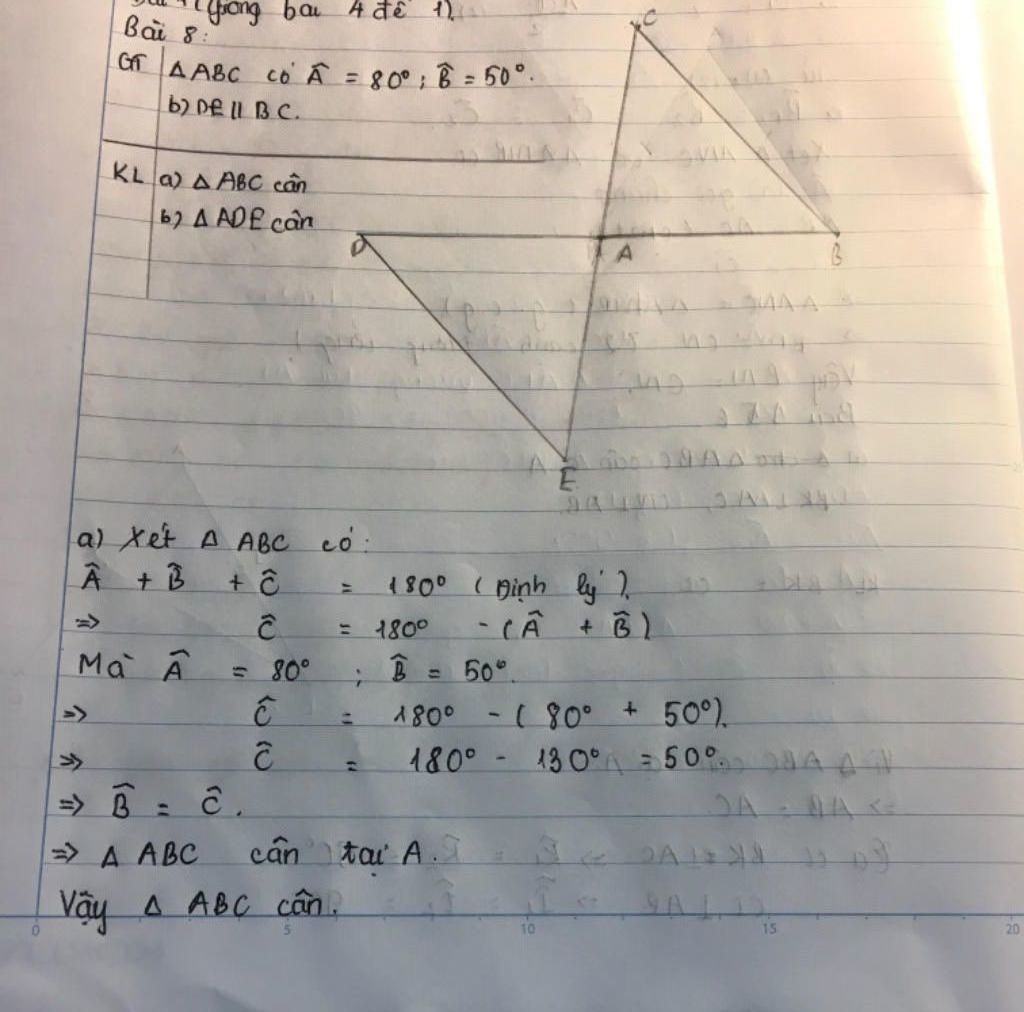 (giống bài 4 đề 1).
Bài 8:
GT
Δ ABC có Â = 80°; B̂ = 50°.
b) DE || BC.
KL
a) Δ ABC cân
b) Δ ADE cân
C
D
A
B
E
a) Xét Δ ABC có:
Â + B̂ + Ĉ = 180° (Định lý).
=> Ĉ = 180° - (Â + B̂)
Mà Â = 80° ; B̂ = 50°.
=> Ĉ = 180° - (80° + 50°).
=> Ĉ = 180° - 130° = 50°.
=> B̂ = Ĉ.
=> Δ ABC cân tại A.
Vậy Δ ABC cân.
0 5 10 15 20